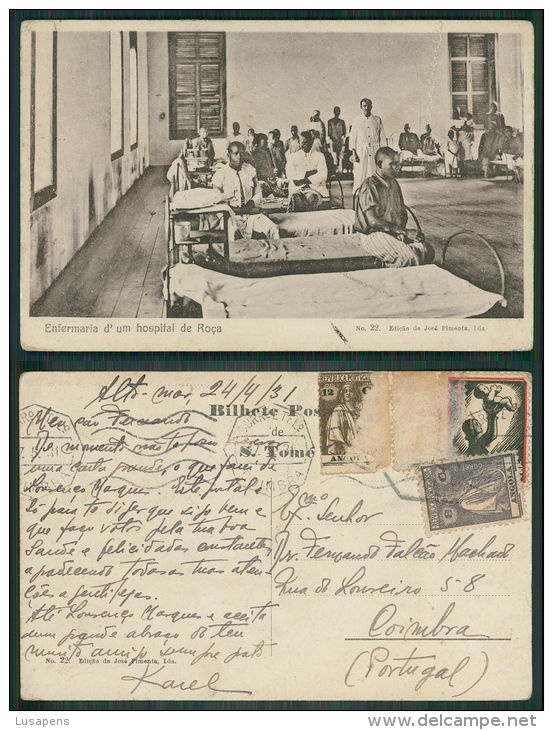 Enfermaria d'um hospital de Roça
No. 22. Edição de José Pimenta, Lda.
Alto-mar, 24/4/31
Bilhete Pos
de
S. Tomé
Meu caro Fernando
No momento não te faço
uma carta grande, o que farei de
Lourenço Marques. Este postal é
só para te dizer que sigo bem e
que faço votos pela tua boa
saude e felicidades constantes,
agradecendo todas as tuas aten-
ções e
Até Lourenço Marques e aceita
um grande abraço do teu
muito amigo sempre grato
Karel
Exmo.
Senhor
Dr. Fernando Falcão Machado
Rua do Loureiro 58
Coimbra
(Portugal)
No. 22. Edição de José Pimenta, Lda.
REPUBLICA PORTUG
12 C
ANGOLA
CORREIO
ANGOLA
Lusapens
www.delcampe.net